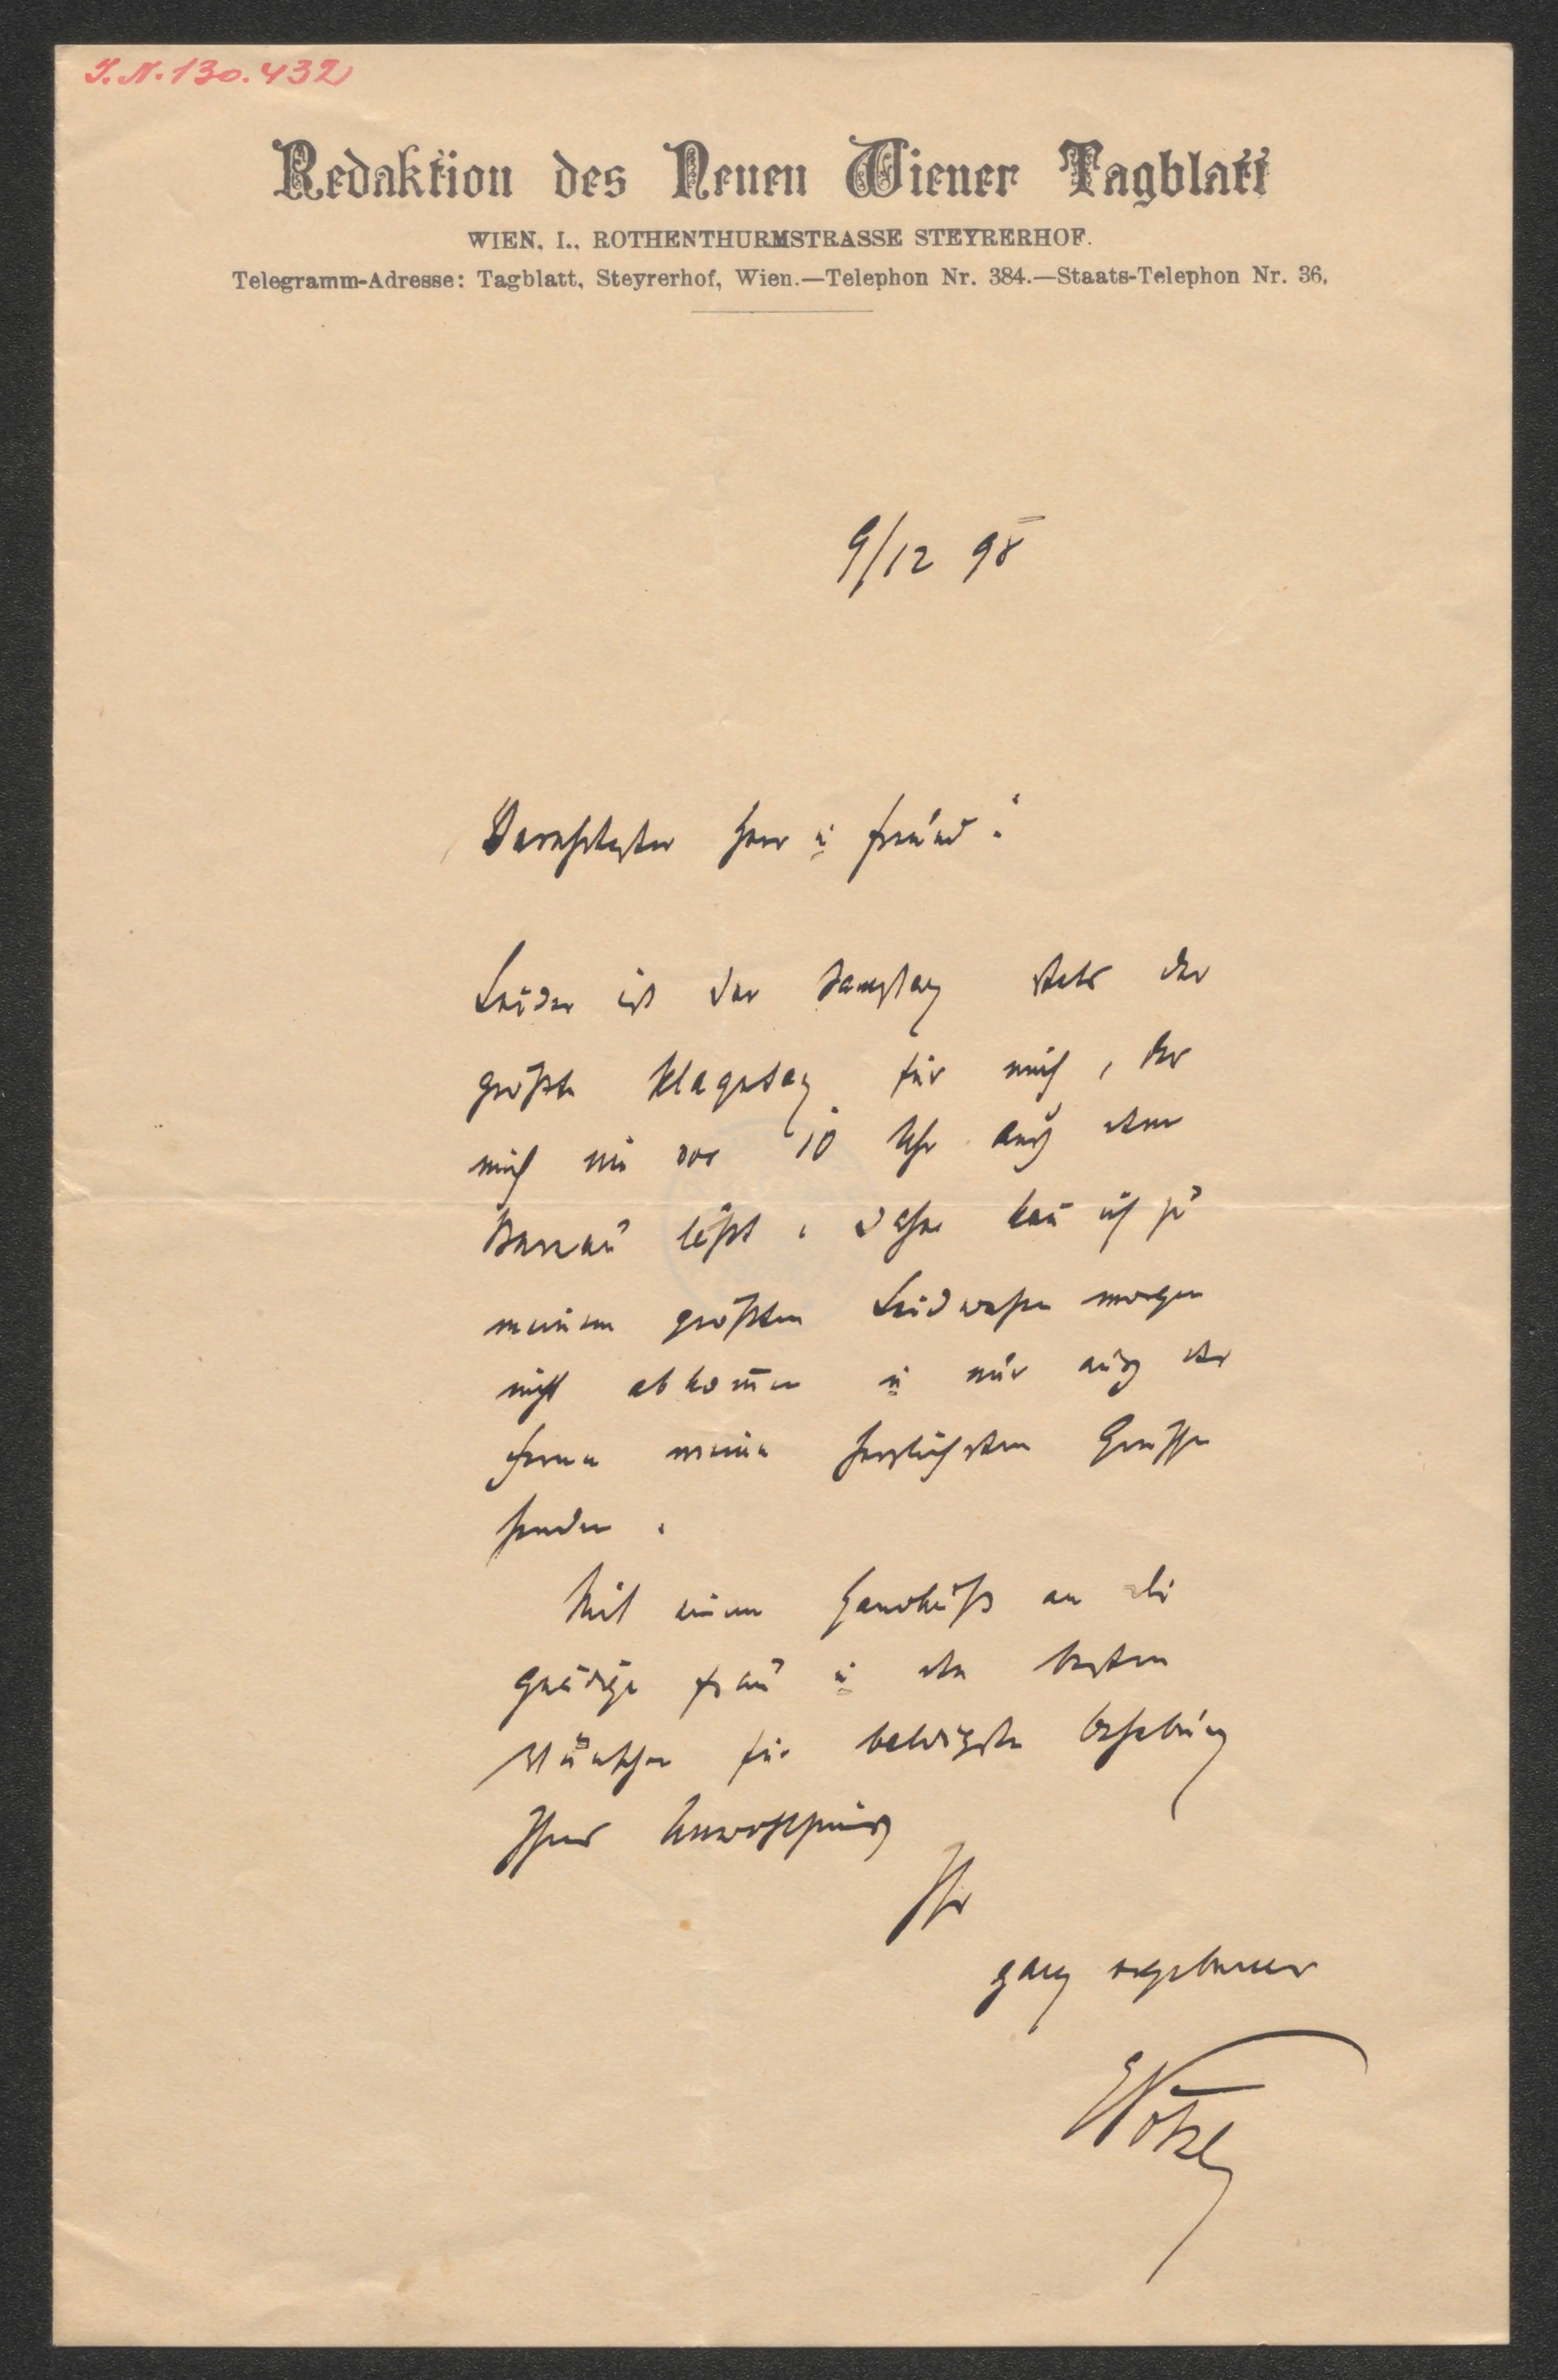 I.N. 130.432
Redaktion des Neuen Wiener Tagblatt
WIEN, I., ROTHENTHURMSTRASSE STEYRERHOF.
Telegramm-Adresse: Tagblatt, Steyrerhof, Wien.—Telephon Nr. 384.—Staats-Telephon Nr. 36.
9/12 98
Verehrtester Herr u Freund!
Leider ist der Samstag stets der
größte Plagetag für mich, der
mich nie vor 10 Uhr aus dem
Bureau läßt. Daher kan̄ ich zu
meinem größten Leidwesen morgen
nicht abkom̄en u nur aus der
Ferne meine herzlichsten Grüße
senden.
Mit einem Handkuß an die
gnädige Frau u den besten
Wünschen für baldigste Behebung
Ihres Unwohlseins
Ihr
ganz ergebener
Pötzl